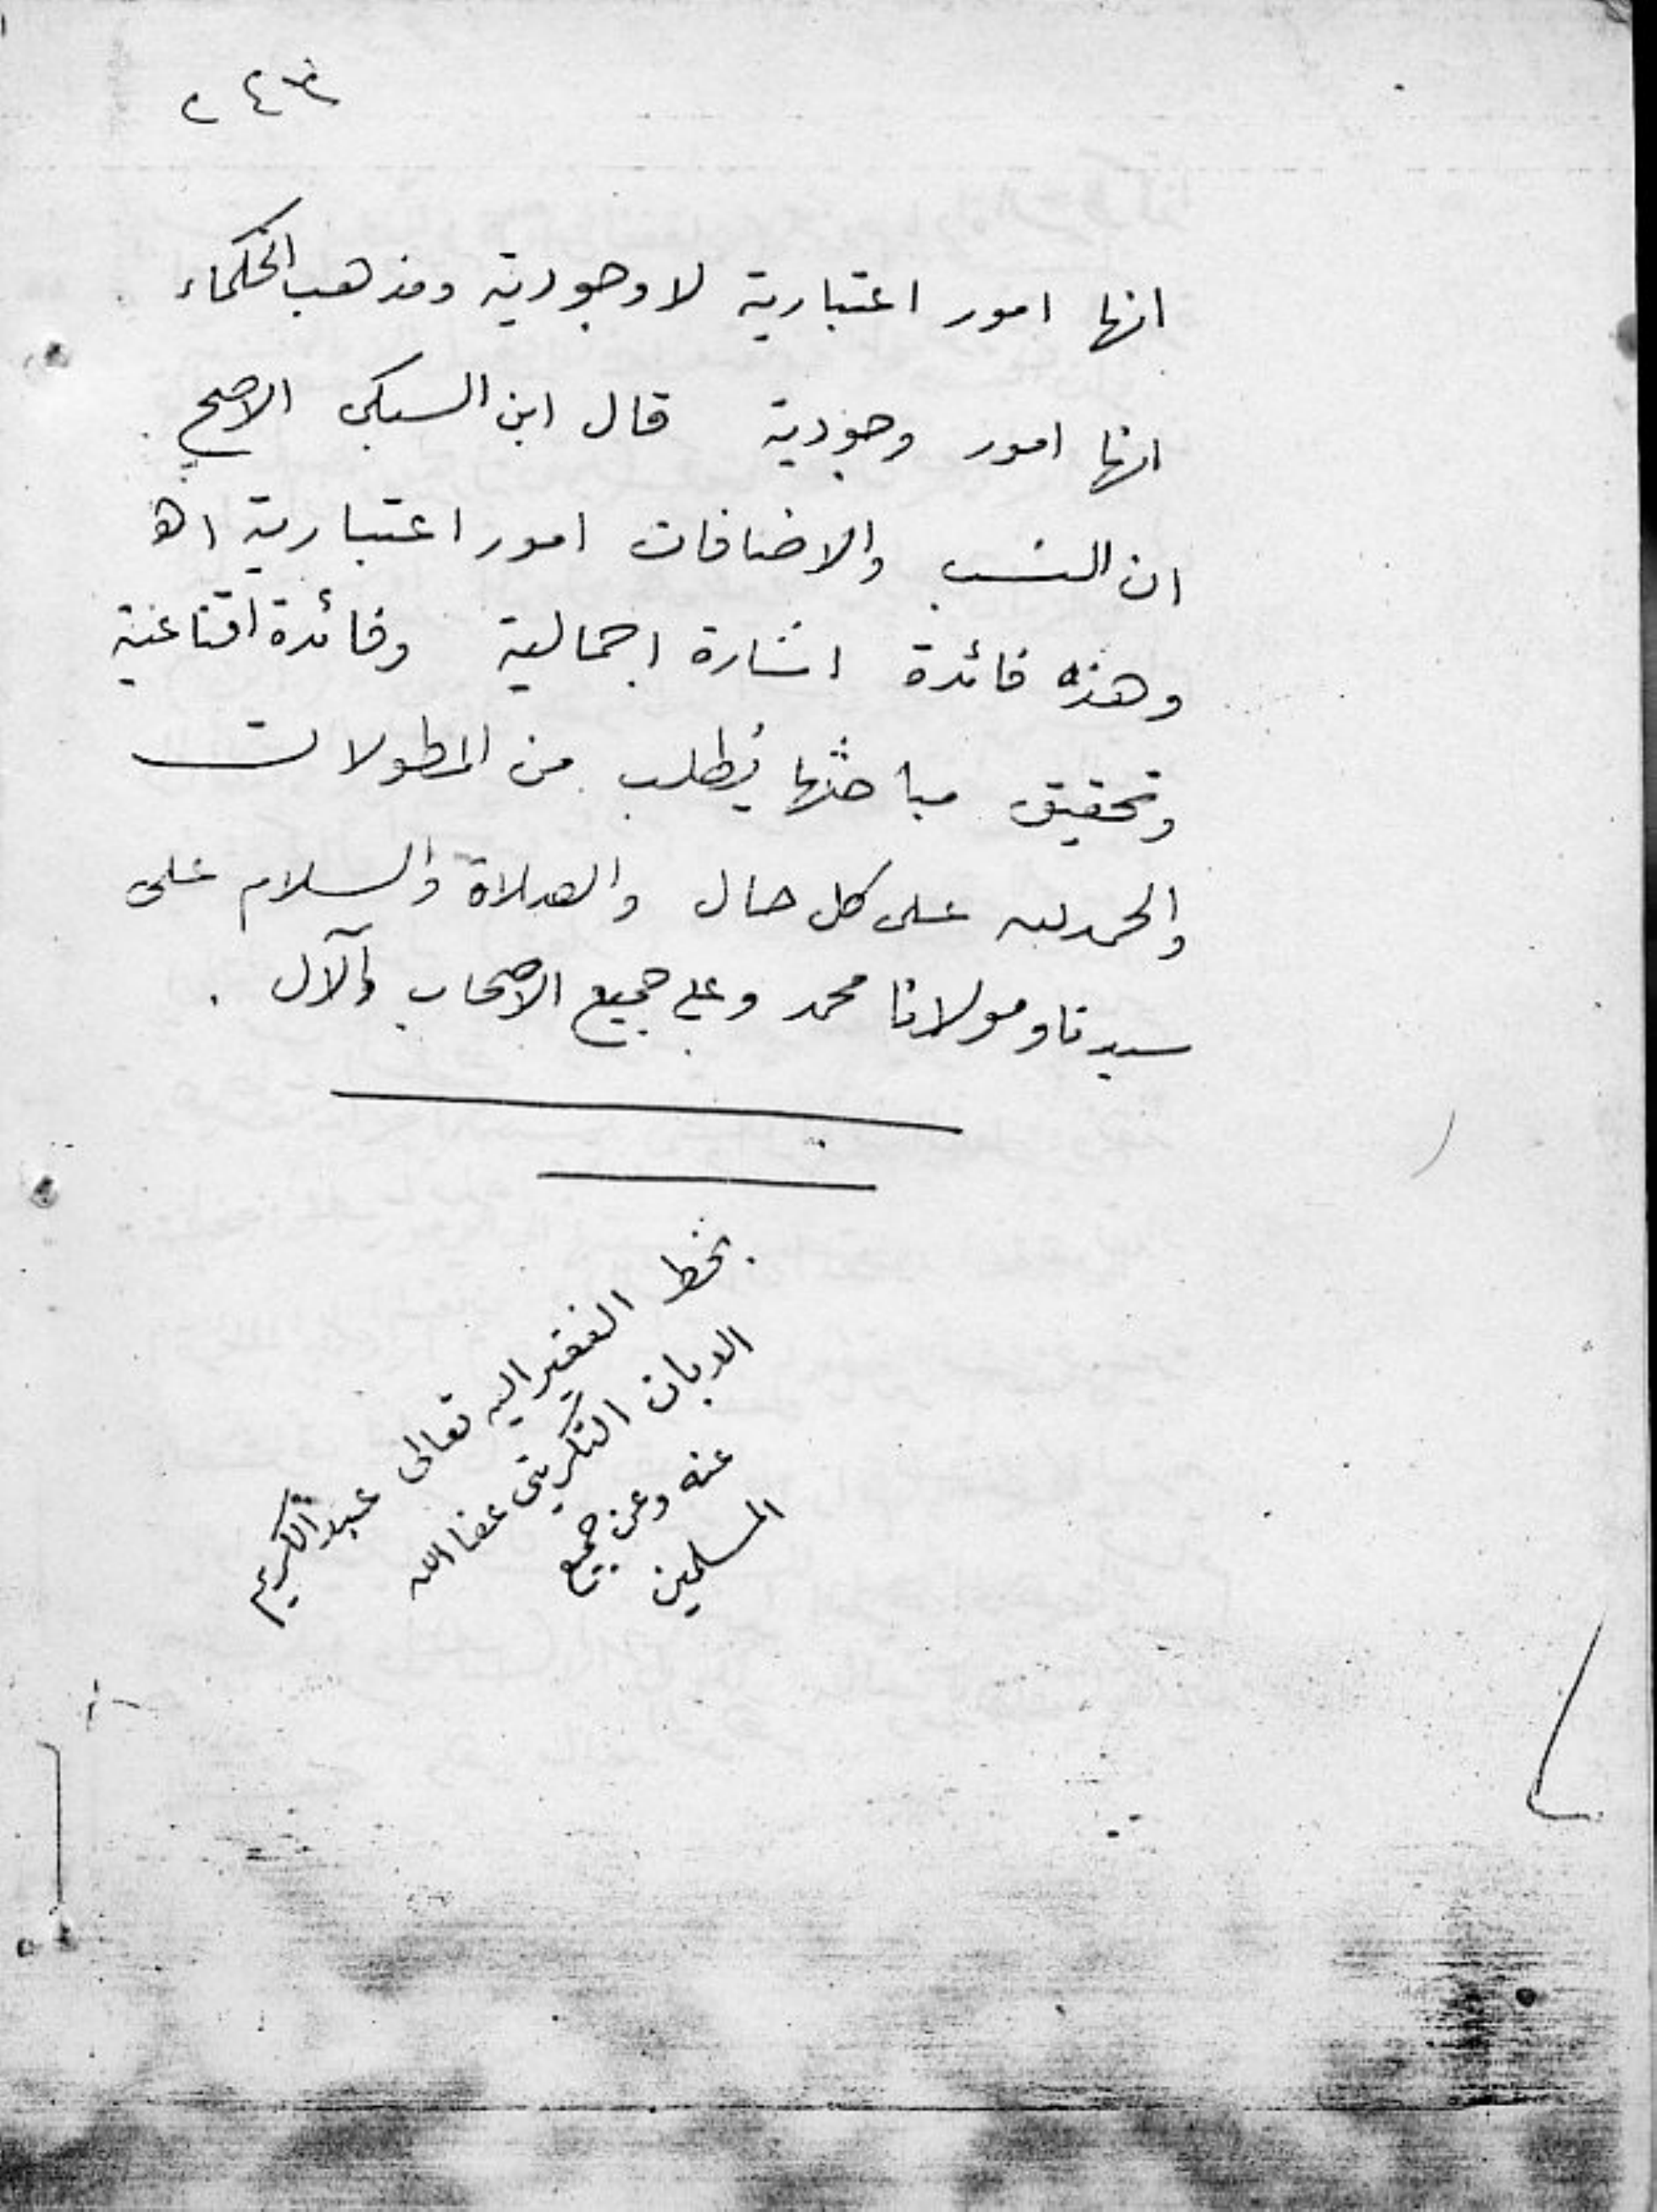 ٢٤٣
انها امور اعتبارية لا وجودية ومذهب الحكماء
انها امور وجودية قال ابن السبكي الاصح
ان النسب والاضافات امور اعتبارية اه
وهذه فائدة اشارة اجمالية وفائدة اقناعية
وتحقيق مباحثها يُطلب من المطولات
والحمد لله على كل حال والصلاة والسلام على
سيدنا ومولانا محمد وعلى جميع الاصحاب والآل .
بخط الفقير اليه تعالى عبد الكريم
الدبان التكريتي عفا الله
عنه وعن جميع
المسلمين